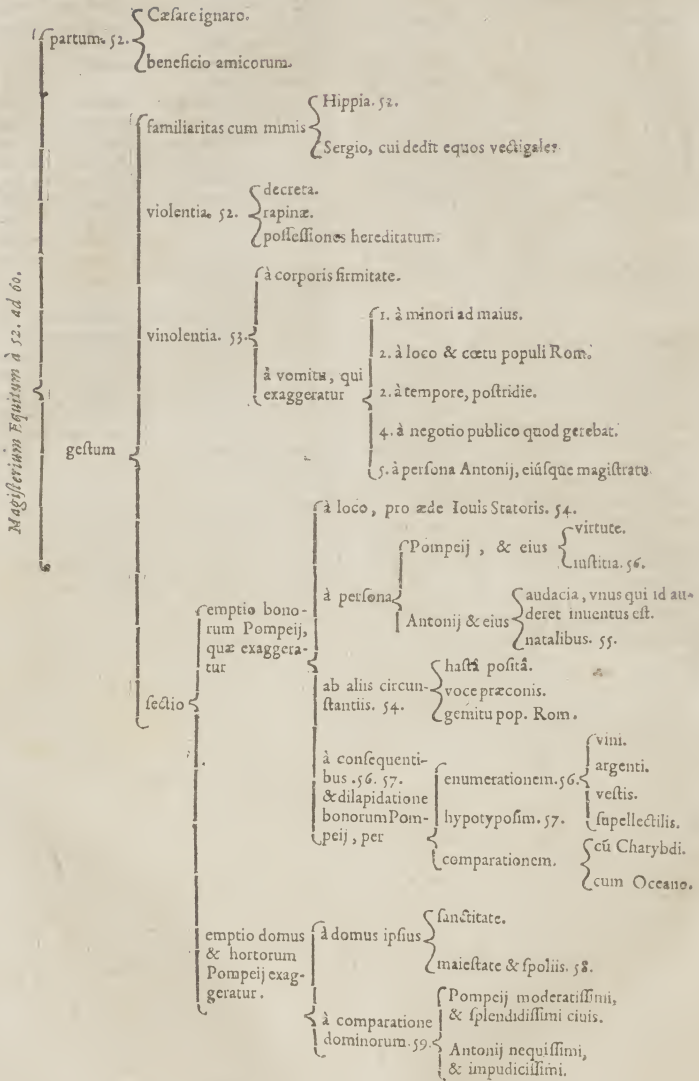 Magisterium Equitum à 52. ad 60.
partum. 52.
Cæsare ignaro.
beneficio amicorum.
gestum
familiaritas cum mimis
Hippia. 52.
Sergio, cui dedit equos vectigales
violentia. 52.
decreta.
rapinæ.
possessiones hereditatum.
vinolentia. 53.
à corporis firmitate.
à vomitu, qui
exaggeratur
1. à minori ad maius.
2. à loco & cœtu populi Rom.
2. à tempore, postridie.
4. à negotio publico quod gerebat.
5. à persona Antonij, eiúsque magistratu
sectio
emptio bono-
rum Pompeij,
quæ exaggera-
tur
à loco, pro æde Iouis Statoris. 54.
à persona
Pompeij, & eius
virtute.
iustitia. 56.
Antonij & eius
audacia, vnus qui id au-
deret inuentus est.
natalibus. 55.
ab aliis circun-
stantiis. 54.
hastâ positâ.
voce præconis.
gemitu pop. Rom.
à consequenti-
bus .56. 57.
& dilapidatione
bonorum Pom-
peij, per
enumerationem. 56.
vini.
argenti.
vestis.
supellectilis.
hypotyposim. 57.
comparationem.
cũ Charybdi.
cum Oceano.
emptio domus
& hortorum
Pompeij exag-
geratur.
à domus ipsius
sanctitate.
maiestate & spoliis. 58.
à comparatione
dominorum. 59.
Pompeij moderatissimi,
& splendidissimi ciuis.
Antonij nequissimi,
& impudicissimi.